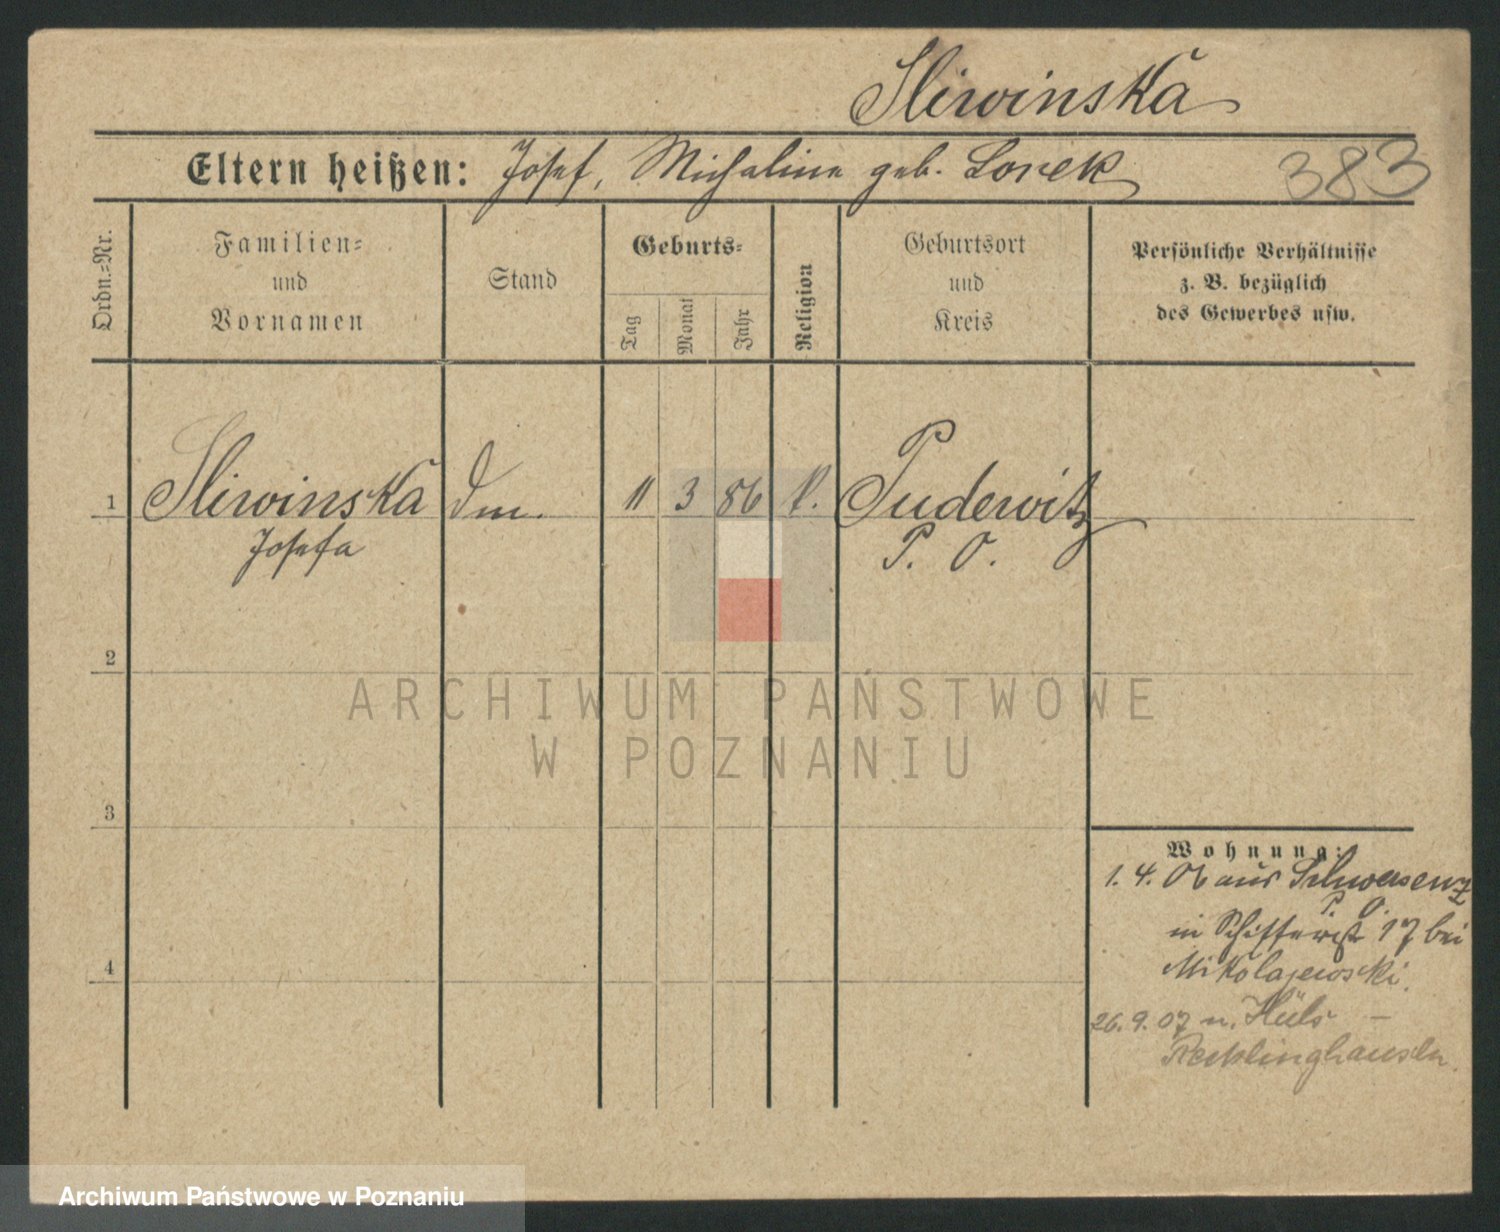 Sliwinska
Eltern heißen: Josef, Michaline geb. Lorek
383
Ordn.-Nr.
Familien-
und
Vornamen
Stand
Geburts-
Tag
Monat
Jahr
Religion
Geburtsort
und
Kreis
Persönliche Verhältnisse
z. B. bezüglich
des Gewerbes usw.
1 Sliwinska 11 3 86 k. Pudewitz
Josefa P. O.
2
ARCHIWUM PAŃSTWOWE
W POZNANIU
3
Wohnung:
1. 4. 06 aus Schwersenz
P. O.
in Schifferstr 17 bei
Mikolajewski.
4
26. 9. 07 n. Hüls –
Recklinghausen
Archiwum Państwowe w Poznaniu